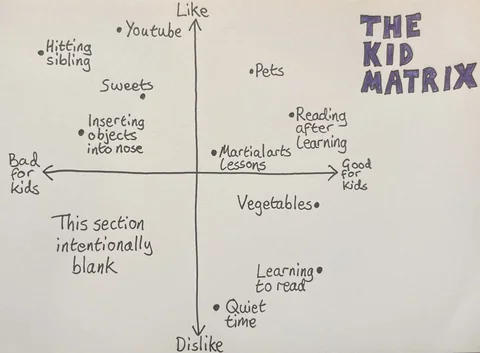 Like
THE
KID
MATRIX
Youtube
Hitting
sibling
Sweets
Pets
Inserting
objects
into nose
Reading
after
Learning
Martial arts
lessons
Bad
for
kids
Good
for
kids
Vegetables
This section
intentionally
blank
Learning
to read
Quiet
time
Dislike